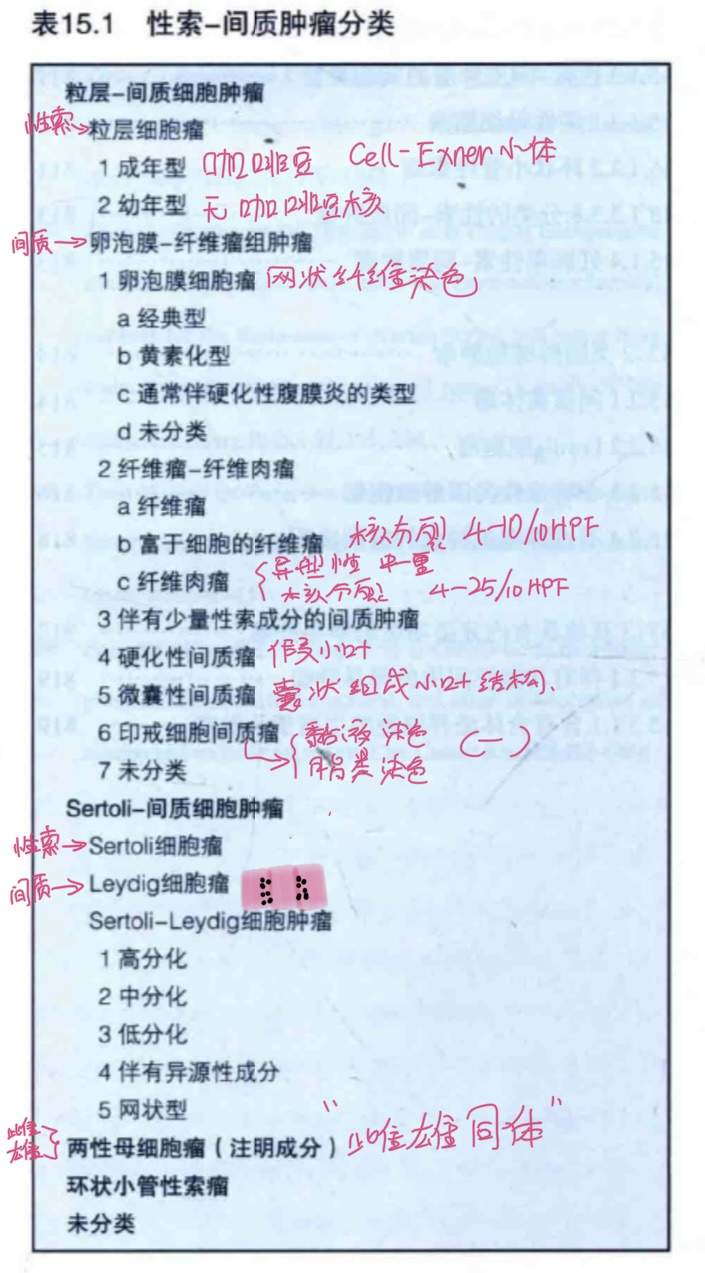 表15.1 性索–间质肿瘤分类
粒层–间质细胞肿瘤
性索→粒层细胞瘤
1 成年型 咖啡豆 Cell-Exner小体
2 幼年型 无咖啡豆核
间质→卵泡膜–纤维瘤组肿瘤
1 卵泡膜细胞瘤 网状纤维染色
a 经典型
b 黄素化型
c 通常伴硬化性腹膜炎的类型
d 未分类
2 纤维瘤–纤维肉瘤
a 纤维瘤
b 富于细胞的纤维瘤 核分裂 4-10/10HPF
c 纤维肉瘤 { 异型性 中-重
核分裂 4-25/10HPF
3 伴有少量性索成分的间质肿瘤
4 硬化性间质瘤 假小叶
5 微囊性间质瘤 囊状组成小叶结构.
6 印戒细胞间质瘤 黏液染色 (-)
7 未分类 脂类染色
Sertoli–间质细胞肿瘤
性索→Sertoli细胞瘤
间质→Leydig细胞瘤
Sertoli–Leydig细胞肿瘤
1 高分化
2 中分化
3 低分化
4 伴有异源性成分
5 网状型
雌雄 } 两性母细胞瘤（注明成分） “雌雄同体”
环状小管性索瘤
未分类